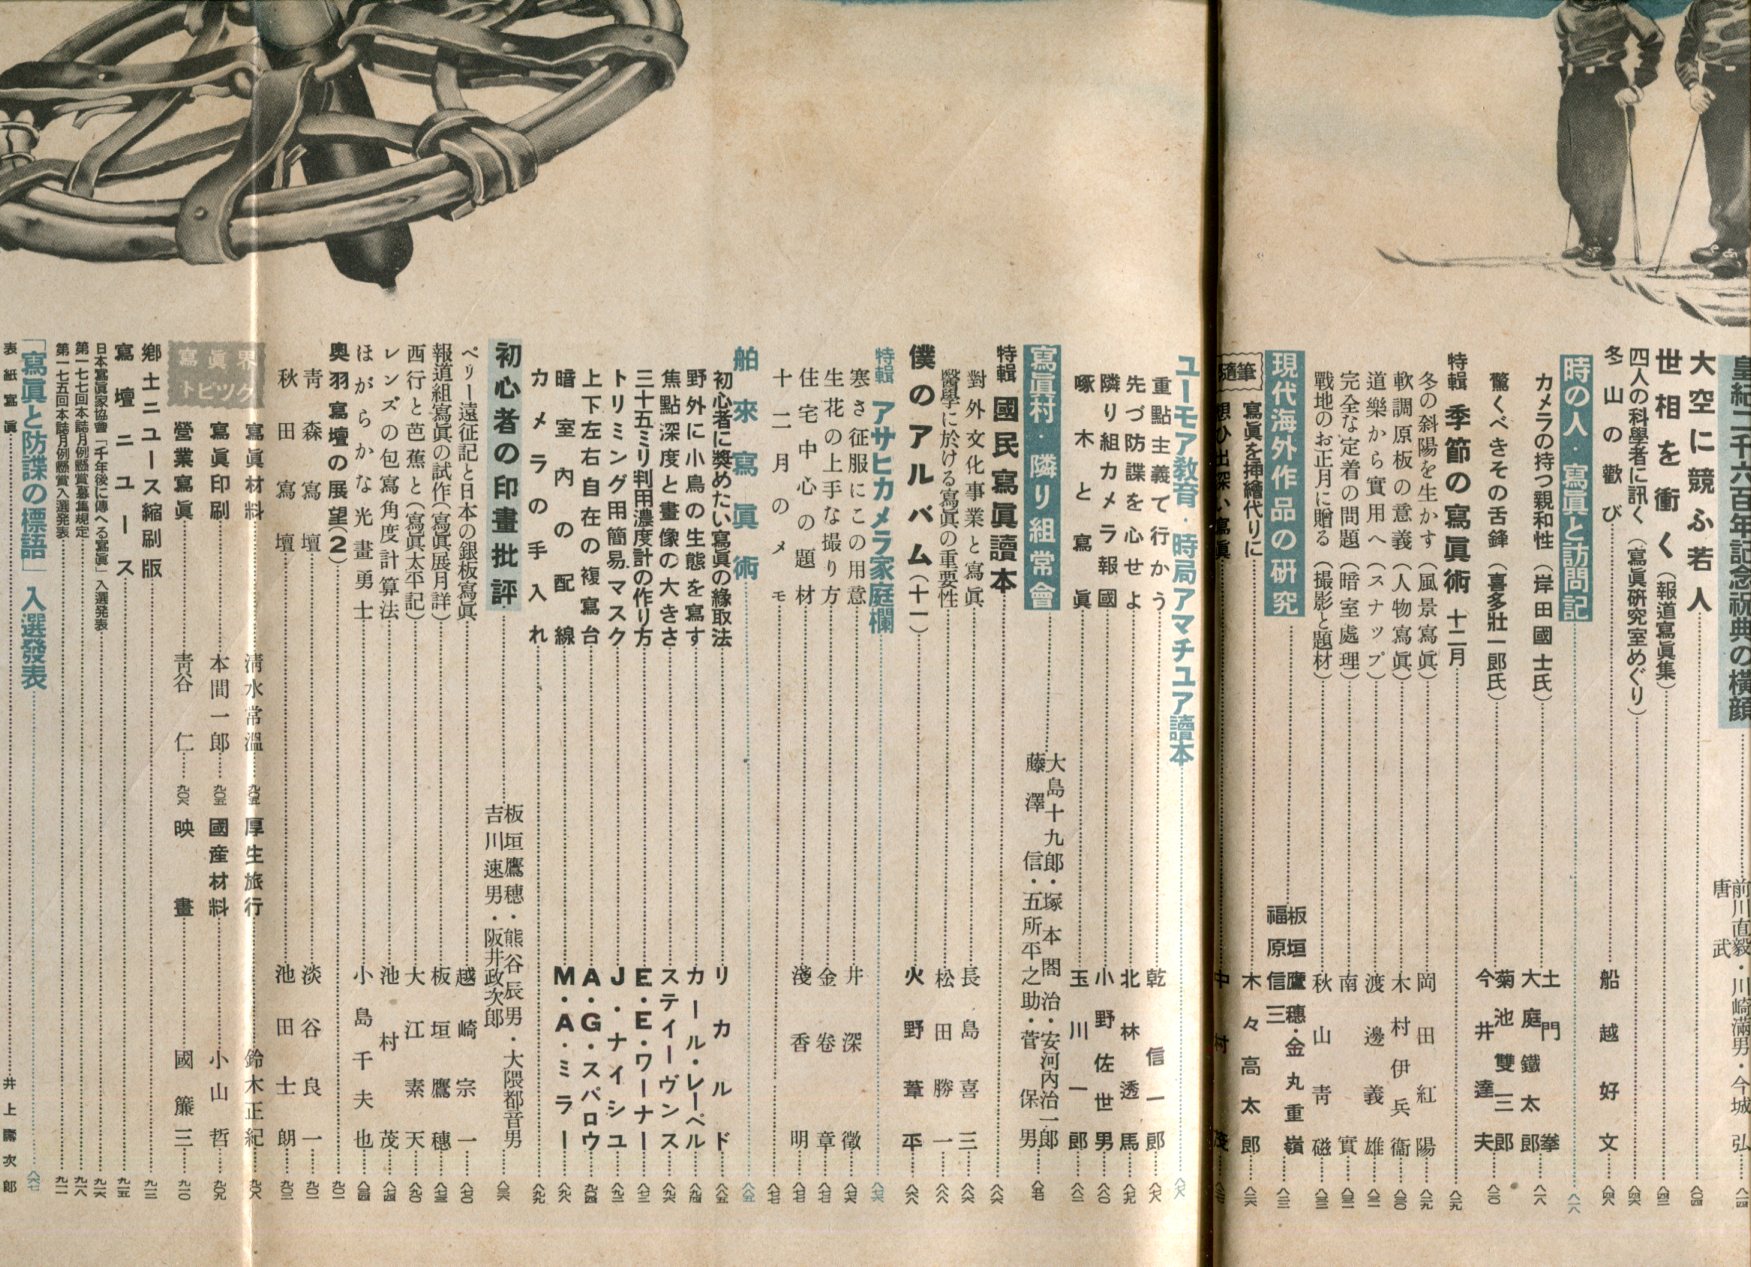 皇紀二千六百年記念祝典の横顔
前川直毅・川崎滿男・今城弘
唐武
大空に競ふ若人
世相を衝く（報道寫眞集）
四人の科學者に訊く（寫眞硏究室めぐり）
冬山の歡び 船越好文
時の人・寫眞と訪問記
カメラの持つ親和性（岸田國士氏） 土門拳
大庭鐵太郎
驚くべきその舌鋒（喜多壯一郎氏） 菊池雙三郎
今井達夫
特輯 季節の寫眞術 十二月
冬の斜陽を生かす（風景寫眞） 岡田紅陽
軟調原板の意義（人物寫眞） 木村伊兵衞
道樂から實用へ（スナップ） 渡邊義雄
完全な定着の問題（暗室處理） 南實
戰地のお正月に贈る（撮影と題材） 秋山靑磁
現代海外作品の硏究
板垣鷹穗・金丸重嶺
福原信三
隨筆 寫眞を挿繪代りに 木々高太郎
想ひ出深い寫眞 中村茂
ユーモア敎育・時局アマチユア讀本
重點主義で行かう 乾信一郎
先づ防諜を心せよ 北林透馬
隣り組カメラ報國 小野佐世男
啄木と寫眞 玉川一郎
寫眞村・隣り組常會
大島十九郎・塚本閤治・安河内治一郎
藤澤信・五所平之助・菅保男
特輯 國民寫眞讀本
對外文化事業と寫眞 長島喜三
醫學に於ける寫眞の重要性 松田勝一
僕のアルバム（十一） 火野葦平
特輯 アサヒカメラ家庭欄
寒さ征服にこの用意 井深徵
生花の上手な撮り方 金卷章
住宅中心の題材 淺香明
十二月のメモ
舶來寫眞術
初心者に奬めたい寫眞の緣取法 リカルド
野外に小鳥の生態を寫す カール・レーベル
焦點深度と畫像の大きさ スティーヴンス
三十五ミリ判用濃度計の作り方 E・E・ワーナー
トリミング用簡易マスク J・ナイシユ
上下左右自在の複寫台 A・G・スパロウ
暗室内の配線 M・A・ミラー
カメラの手入れ
初心者の印畫批評
板垣鷹穗・熊谷辰男・大隈都音男
吉川速男・阪井政次郎
ペリー遠征記と日本の銀板寫眞 越崎宗一
報道組寫眞の試作（寫眞展月評） 板垣鷹穗
西行と芭蕉と（寫眞太平記） 大江素天
レンズの包寫角度計算法 池村茂
ほがらかな光畫勇士 小島千夫也
奥羽寫壇の展望（2）
靑森寫壇 淡谷良一
秋田寫壇 池田士朗
寫眞界トピック
寫眞材料 淸水常溫
厚生旅行 鈴木正紀
寫眞印刷 本間一郎
國産材料 小山哲
營業寫眞 靑谷仁
映畫 國簾三
鄕土ニユース縮刷版
寫壇ニユース
日本寫眞家協會「千年後に傳へる寫眞」入選發表
第一七七回本誌月例懸賞募集規定
第一七五回本誌月例懸賞入選發表
「寫眞と防諜の標語」入選發表
表紙寫眞 井上騰次郎